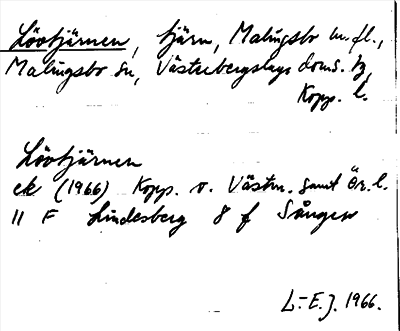 Lövtjärnen, tjärn, Malingsbo m.fl.,
Malingsbo sn, Västerbergslags doms. tg,
Kopp. l.
Lövtjärnen
ek (1966) Kopp. o. Västm. samt Ör. l.
11 F Lindesberg 8 f Sången
L-E.J. 1966.